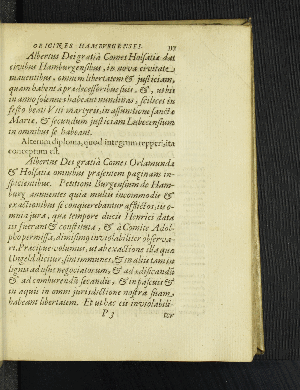 ORIGINES HAMBURGENSES. 117
Albertus Dei gratiâ Comes Holsatiæ dat
civibus Hamburgensibus, in nova civitate
manentibus, omnem libertatem & justiciam,
quam habent à prædecessoribus suis, &, ut bis
in anno solennes habeant nundinas, scilicet in
festo beati Viti martyris, in assumtione sanctæ
Mariæ, & secundum justiciam Lubecensium
in omnibus se habeant.
Alterum diploma, quod integrum repperi, ita
conceptum est.
Albertus Dei gratiâ Comes Orlamundæ
& Holsatiæ omnibus præsentem paginam in-
spicientibus. Petitioni Burgensium de Ham-
burg annuentes quia multis incommodis &
exactionibus se conquerebantur afflictos, ut o-
mnia jura, quæ tempore ducis Henrici data
iis fuerant & confirmata, & à Comite Adol-
pho permissa, dimisimus inviolabiliter observa-
ri. Præcipue volumus, ut ab exactione illa quæ
Ungeld dicitur, sint immunes, & in aliis tam in
lignis ad usus negociatorum, & ad ædificandum
& ad comburendum secandis, & in pascuis &
in aquis in omni jurisdictione nostra suam
habeant libertatem. Et ut hæc sit inviolabili-
P 3 ter